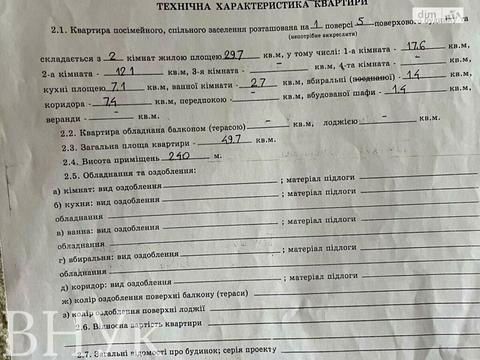 ТЕХНІЧНА ХАРАКТЕРИСТИКА КВАРТИРИ
dim.ria
2.1. Квартира посімейного, спільного заселення розташована на 1 поверсі 5 поверхового
(непотрібне викреслити)
складається з 2 кімнат жилою площею 29.7 кв.м, у тому числі: 1-а кімната - 17.6
кв.м, 2-а кімната - 12.1 кв.м, 3-я кімната - – кв.м, 4-та кімната - – кв.м,
кухні площею 7.1 кв.м, ванної кімнати - 2.7 кв.м, вбиральні (поєднаної) - 1.4 кв.м,
коридора - 7.4 кв.м, передпокою - – кв.м, вбудованої шафи - 1.4 кв.м,
веранди - – кв.м.
2.2. Квартира обладнана балконом (терасою) – кв.м, лоджією – кв.м.
2.3. Загальна площа квартири - 49.7 кв.м.
2.4. Висота приміщень 240 м.
2.5. Обладнання та оздоблення:
а) кімнат: вид оздоблення ; матеріал підлоги
б) кухня: вид оздоблення ; матеріал підлоги
обладнання
в) ванна: вид оздоблення ; матеріал підлоги
обладнання
г) вбиральня: вид оздоблення ; матеріал підлоги
обладнання
д) коридор: вид оздоблення ; матеріал підлоги
ж) колір оздоблення поверхні балкону (тераси)
з) колір оздоблення поверхні лоджії
2.6. Відносна вартість квартири
2.7. Загальні відомості про будинок; серія проекту
ВНУК